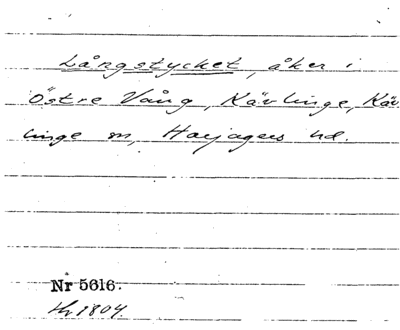 Långstycket, åker i
Östre Vång, Kävlinge, Käv
linge sn, Harjagers hd.
Nr 5616.
1804.